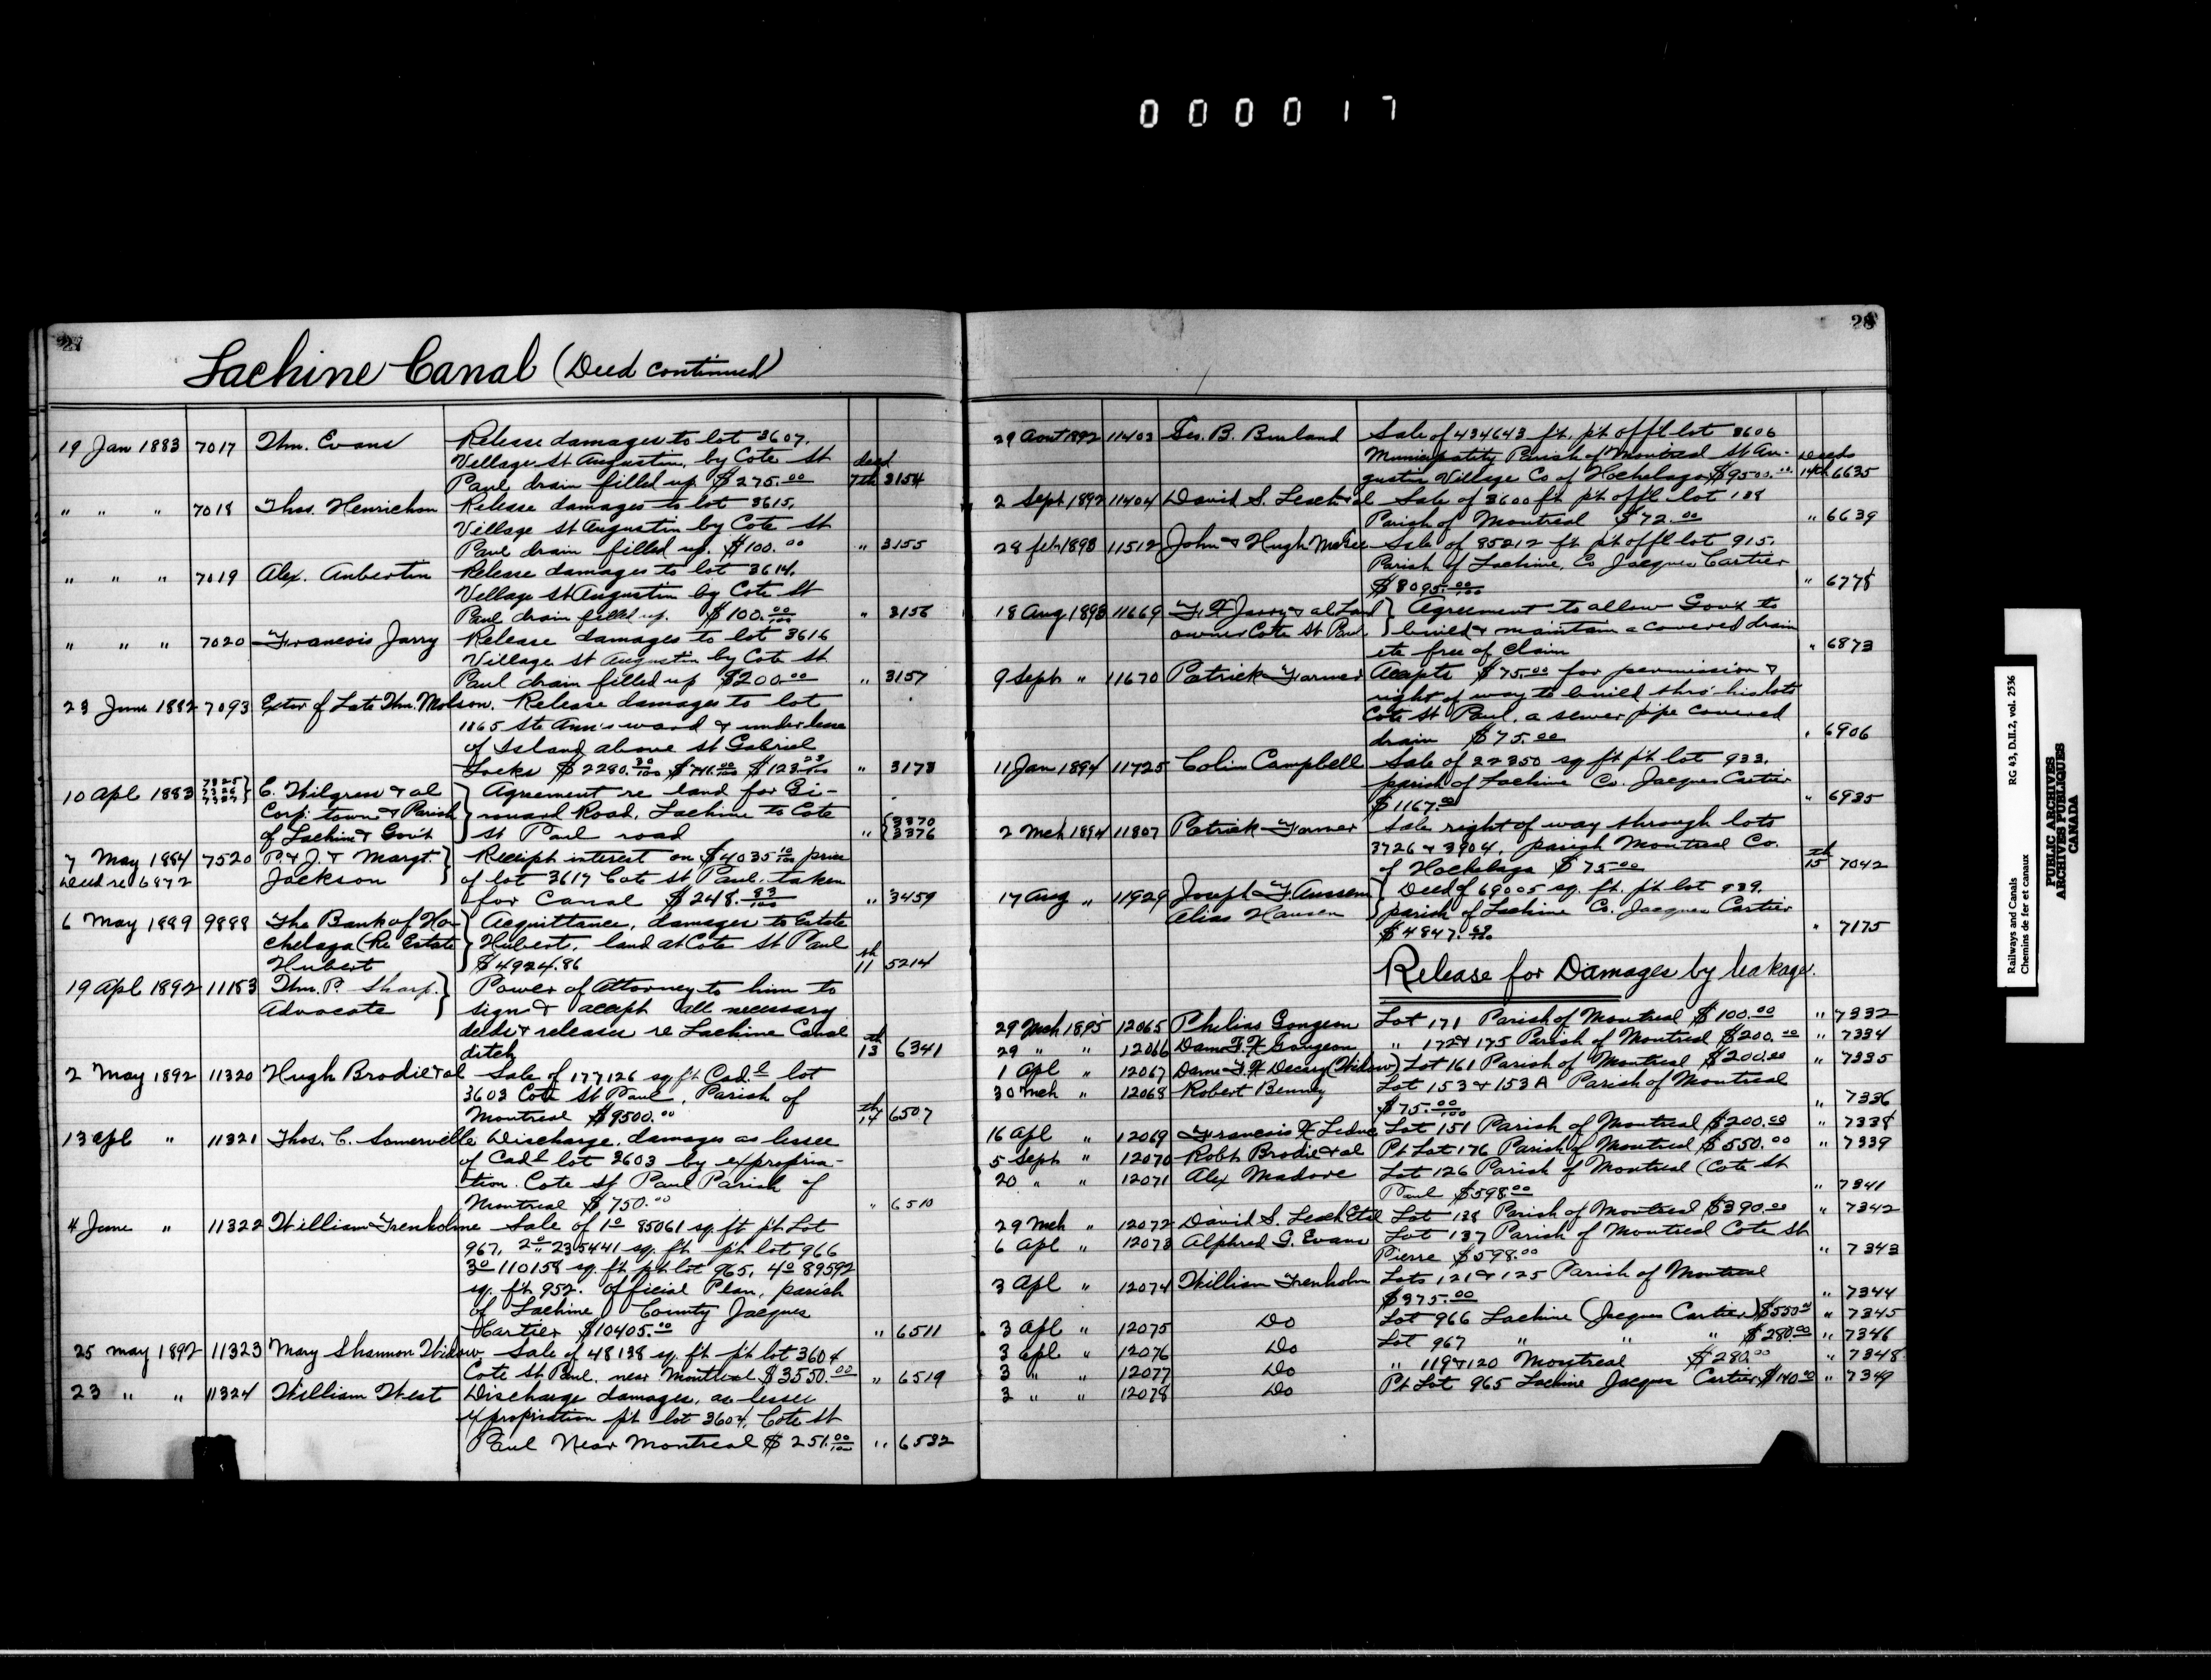 000017
27
Lachine Canal (Deed continued)
19 Jan 1883 7017 Thm. Evans Release damages to lot 3607,
Village St Augustin, by Cote St deed
Paul drain filled up $275.00 7th 3154
" " " 7018 Thos. Henrichon Release damages to lot 3615,
Village St Augustin by Cote St
Paul drain filled up. $100.00 " 3155
" " " 7019 Alex. Aubertin Release damages to lot 3614,
Village St Augustin by Cote St
Paul drain filled up. $100.00/100 " 3156
" " " 7020 Francois Jarry Release damages to lot 3616
Village St Augustin by Cote St
Paul drain filled up $200.00 " 3157
23 June 1882 7093 Exter of Late Thm. Molson. Release damages to lot
1865 Ste Ann's ward & under lease
of Island above St Gabriel
Locks $2280.30/100 $746.00/100 $123.23/100 " 3173
10 Apl 1883 7325 7326 7327 C. Wilgress & al Agreement re land for Gi-
Corp: town & Parish rouard Road, Lachine to Cote 3370
of Lachine & Gov't St Paul road " 3376
7 May 1884 7520 P. & J. & Margt. Receipt interest on $4035 10/100 price
Deed re 6872 Jackson of lot 3617 Cote St Paul. taken
for Canal $248.83/100 " 3459
6 May 1889 9888 The Bank of Ho- Acquittance, damages to Estate
chelaga (Re Estate Hubert, land at Cote St Paul
Hubert $4924.86 11th 5214
19 Apl 1892 11153 Thm. P. Sharp. Power of Attorney to him to
Advocate sign & accept all necessary
deeds & releases re Lachine Canal
ditch 13th 6341
2 May 1892 11320 Hugh Brodie & al Sale of 177126 sq ft Cad.l lot
3603 Cote St Paul, Parish of
Montreal $9500.00 14th 6507
13 apl " 11321 Thos. C. Somerville Discharge, damages as lessee
of Cadl lot 3603 by expropria-
tion. Cote St Paul Parish of
Montreal $750.00 " 6510
4 June " 11322 William Trenholme Sale of 1o 85061 sq. ft pt Lot
967, 2o 235441 sq. ft pt lot 966
3o 110158 sq. ft pt lot 965, 4o 89592
sq. ft. 952. Official Plan, parish
of Lachine County Jacques
Cartier $10405.00 " 6511
25 may 1892 11323 Mary Shannon Widow Sale of 48138 sq. ft pt lot 3604
Cote St Paul, near Montreal $3550.00 " 6519
23 " " 11324 William West Discharge damages, as lessee
expropriation pt lot 3604, Cote St
Paul Near Montreal $251.00/100 " 6532
28
29 Aout 1892 11403 Geo. B. Burland Sale of 434643 ft. pt offl lot 3606
Municipality Parish of Montreal St Au- Deeds
gustin Village Co of Hochelaga $9500.00 14th 6635
2 Sept 1892 11404 David S. Leach & al Sale of 3600 ft pt offl lot 138
Parish of Montreal $72.00 " 6639
28 feb 1893 11512 John & Hugh McGee Sale of 85212 ft pt offl lot 915.
Parish of Lachine, Co Jacques Cartier
$8095.00/100 " 6778
18 Aug 1893 11669 F. X Jarry & al Land Agreement to allow Gov't to
owners Cote St Paul build & maintain a covered drain
etc free of claim " 6873
9 Sept " 11670 Patrick Farmer Accepts $75.00 for permission &
right of way to build thro' his lots
Cote St Paul, a sewer pipe covered
drain $75.00 " 6906
11 Jan 1894 11725 Colin Campbell Sale of 22350 sq ft pt lot 933,
parish of Lachine Co. Jacques Cartier
$1167.00 " 6935
2 Mch 1894 11807 Patrick Farmer Sale right of way through lots
3726 & 3904, parish Montreal Co.
of Hochelaga $75.00 15th 7042
17 Aug " 11929 Joseph F. Aussem Deed of 69005 sq. ft. pt lot 939,
Alias Hausen parish of Lachine Co. Jacques Cartier
$4847. " 7175
Release for Damages by leakage.
29 Mch 1895 12065 Philias Gougeon Lot 171 Parish of Montreal $100.00 " 7332
29 " " 12066 Dame F. X Gougeon " 172 & 175 Parish of Montreal $200.00 " 7334
1 Apl " 12067 Dame F X Decary (Widow) Lot 161 Parish of Montreal $200.00 " 7335
30 Mch " 12068 Robert Benny Lot 153 & 153A Parish of Montreal
$75.00/100 " 7336
16 Apl " 12069 Francois X Leduc Lot 151 Parish of Montreal $200.00 " 7338
5 Sept " 12070 Robt Brodie & al Pt Lot 176 Parish of Montreal $550.00 " 7339
20 " " 12071 Alex Madore Lot 126 Parish of Montreal (Cote St
Paul $598.00 " 7341
29 Mch " 12072 David S. Leach Et al Lot 138 Parish of Montreal $390.00 " 7342
6 Apl " 12073 Alphred G. Evans Lot 137 Parish of Montreal Cote St
Pierre $598.00 " 7343
3 Apl " 12074 William Trenholm Lots 121 & 125 Parish of Montreal
$375.00 " 7344
3 Apl " 12075 Do Lot 966 Lachine (Jacques Cartier) $550.00 " 7345
3 apl " 12076 Do Lot 967 " " " $280.00 " 7346
3 " " 12077 Do " 119 & 120 Montreal $280.00 " 7348
3 " " 12078 Do Pt Lot 965 Lachine Jacques Cartier $140.00 " 7349
Railways and Canals RG 43, D.II.2, vol. 2536
Chemins de fer et canaux
PUBLIC ARCHIVES
ARCHIVES PUBLIQUES
CANADA